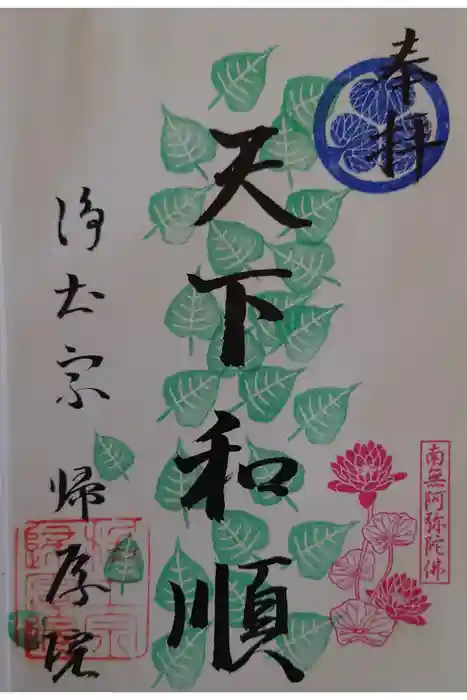 奉拝
天下和順
南無阿弥陀佛
浄土宗 帰厚院